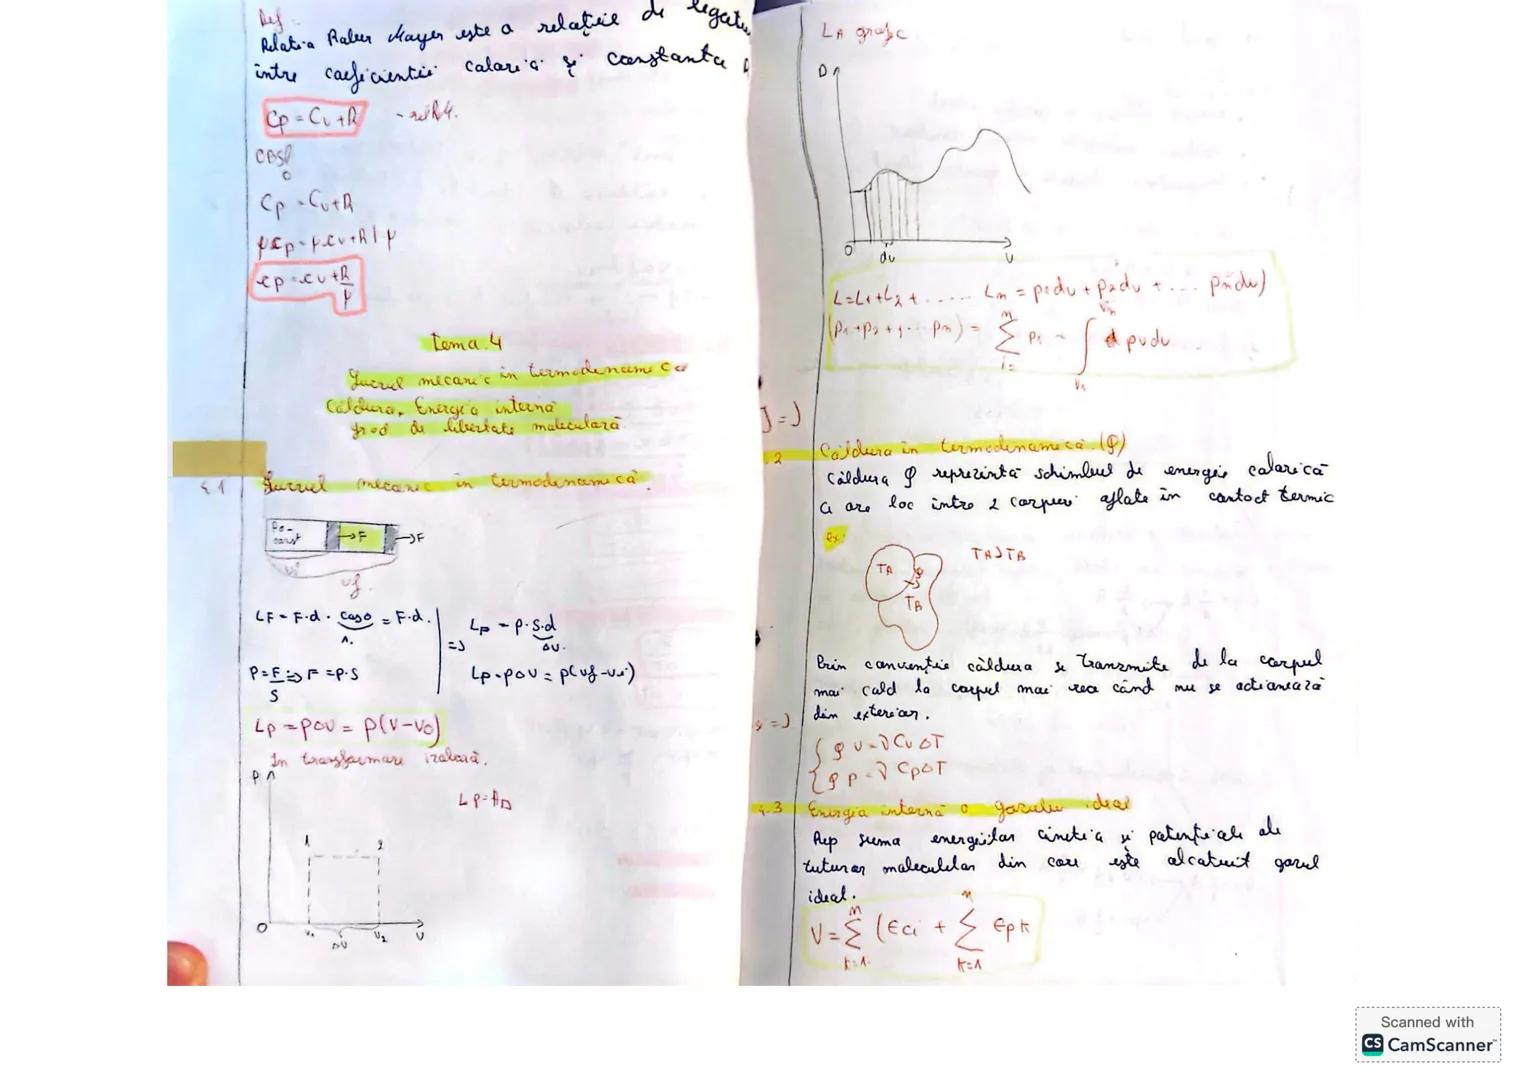 Def.
Relatia Rober Mayer este o relație de legatu
între coeficientii calorici și constanta
Cp = Cv + R
OBS!
Cp = Cv + R
μcp = μcv + R | μ
cp = cv + R/μ
Tema 4
Lucrul mecanic în termodenamica
Căldura, Energia internă
grad de libertate moleculară
Lucrul mecanic in termodenamică.
po-
const
→F
→F
vi
vf.
LF = F·d · coso = F·d.
1.
P = F/S => F = P·S
=>
Lp = p·S·d
ΔV.
Lp = pΔv = p(vf-vi)
Lp = pΔv = p(v-vo)
In transformare izobară.
P
Lp = A□
1 2
O V1 ΔV V2 V
La grafic
O dv v
L=L1+L2+..... Ln = p1dv + p2dv + ... pndv)
(p1+p2+,... pn) = Σ pi = ∫ d pvdv
J = J
.2 Căldura in termodenamică. (Q)
Căldura Q reprezintă schimbul de energie calorică
ce are loc între 2 corpuri aflate în contact termic
Ex.
TA>TB
TA
Q
TB
Prin convenție căldura se tranzmite de la corpul
mai cald la corpul mai rece când nu se actionează
din exterior.
Qv = νCvΔT
Qp = νCpΔT
4.3 Energia internă a gazului ideal
Rep suma energiilor cinetica și patențiale ale
tuturor moleculelor din care este alcatuit gazul
ideal.
V = Σ (Eci + Σ Epk
n k=1 n k=1
Scanned with
CS CamScanner